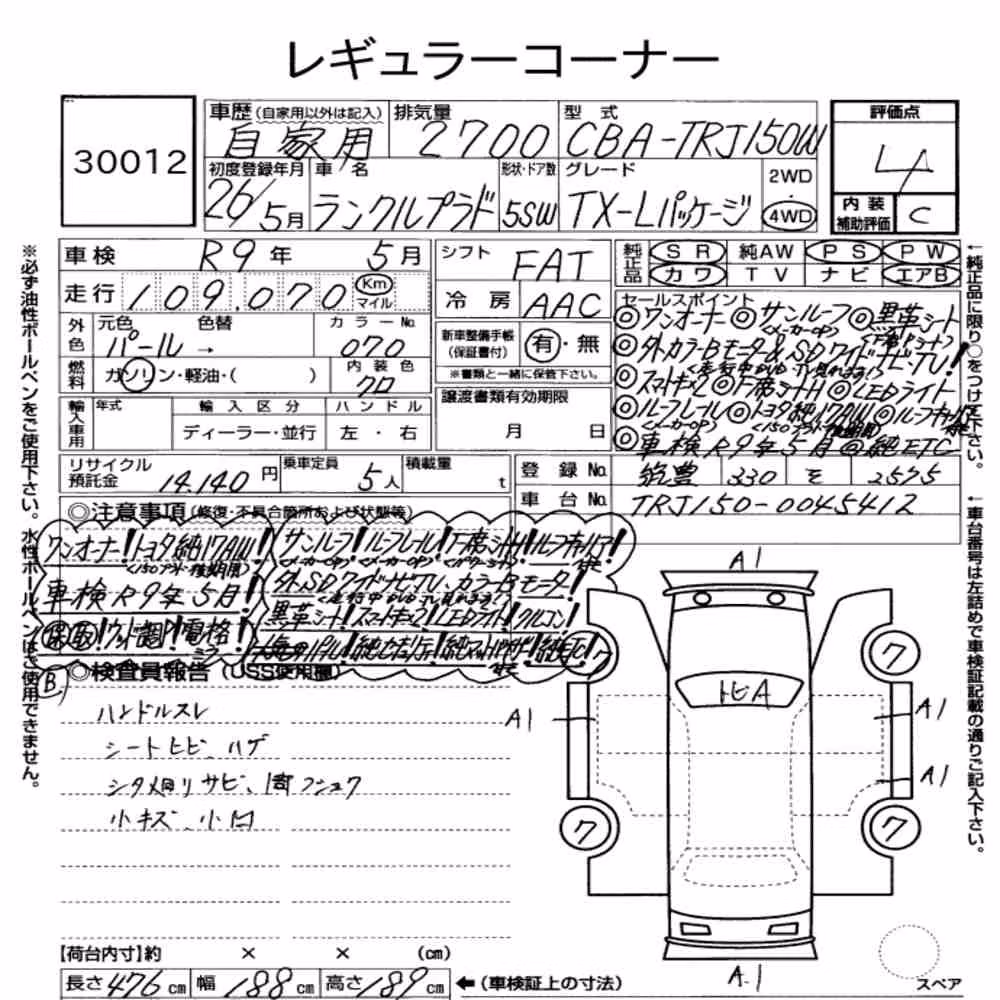 レギュラーコーナー
30012
車歴(自家用以外は記入) 自家用
排気量 2700
型式 CBA-TRJ150W
評価点 4
内装補助評価 C
初度登録年月 26/5月
車名 ランクルプラド
形状・ドア数 5SW
グレード TX-Lパッケージ
2WD・4WD
車検 R9年 5月
シフト FAT
純正品 SR 純AW PS PW
カワ TV ナビ エアB
走行 109.070 Km マイル
冷房 AAC
外色 元色 パール → 色替 カラーNo. 070
新車整備手帳(保証書付) 有・無
※書類と一緒に保管下さい。
燃料 ガソリン・軽油・( ) 内装色 クロ
セールスポイント
◎ワンオーナー◎サンルーフ◎黒革シート
<メーカーOP>
◎外カラーBモニタ&SDワイドナビTV!
◎スマートキー×2◎F席シートH◎LEDライト
◎ルーフレール◎トヨタ純17AW◎ルーフキャリア
<メーカーOP> <150プラド後期用>
◎車検R9年5月◎純ETC
輸入車用 年式 輸入区分 ハンドル
ディーラー・並行 左・右
譲渡書類有効期限
月 日
リサイクル預託金 14.140円
乗車定員 5人
積載量 t
登録No. 筑豊 330 そ 2575
車台No. TRJ150-0045412
◎注意事項(修復・不具合箇所および状態等)
ワンオーナー!トヨタ純17AW!サンルーフ!ルーフレール!F席シートH!ルーフキャリア!
<150プラド後期用> <メーカーOP> <メーカーOP>
車検R9年5月!外SDワイドナビTV、カラーBモニタ!
黒革シート!スマートキー×2!LEDライト!クルコン!
保取!ウッド調P!電格!
ミラー
純ETC!
◎検査員報告(USS使用欄)
B
ハンドルスレ
シートヒビ、ハゲ
シタ廻リサビ、
小キズ、小凹
A1
トビA
A1
A1
A1
A1
ワ
ワ
ワ
ワ
【荷台内寸】約 × × (cm)
長さ 476cm 幅 188cm 高さ 189cm
←(車検証上の寸法)
スペア
※必ず油性ボールペンをご使用下さい。水性ボールペンはご使用できません。
←純正品に限り○をつけて下さい。
←車台番号は左詰めで車検証記載の通りご記入下さい。